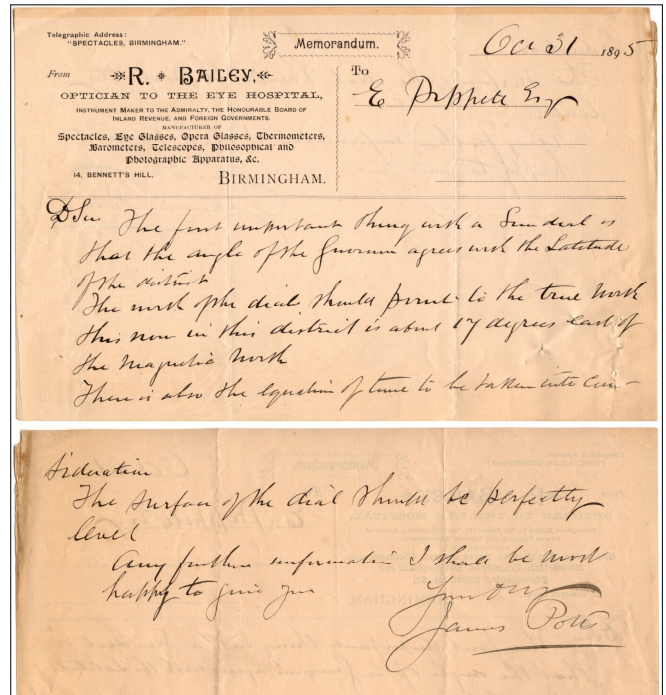 Telegraphic Address:
"SPECTACLES, BIRMINGHAM."
Memorandum.
Oct 31 1895
From
R. BAILEY,
OPTICIAN TO THE EYE HOSPITAL,
INSTRUMENT MAKER TO THE ADMIRALTY, THE HONOURABLE BOARD OF
INLAND REVENUE, AND FOREIGN GOVERNMENTS.
MANUFACTURER OF
Spectacles, Eye Glasses, Opera Glasses, Thermometers,
Barometers, Telescopes, Philosophical and
Photographic Apparatus, &c.
14, BENNETT'S HILL, BIRMINGHAM.
To
E Esq
D Sir The first important thing with a Sundial is
that the angle of the Gnomon agrees with the Latitude
of the district
The north of the dial should point to the true North
this now in this district is about 17 degrees East of
the Magnetic North
There is also the equation of time to be taken into Con-
sideration
The surface of the dial should be perfectly
level
Any further information I shall be most
happy to give you
James Potts